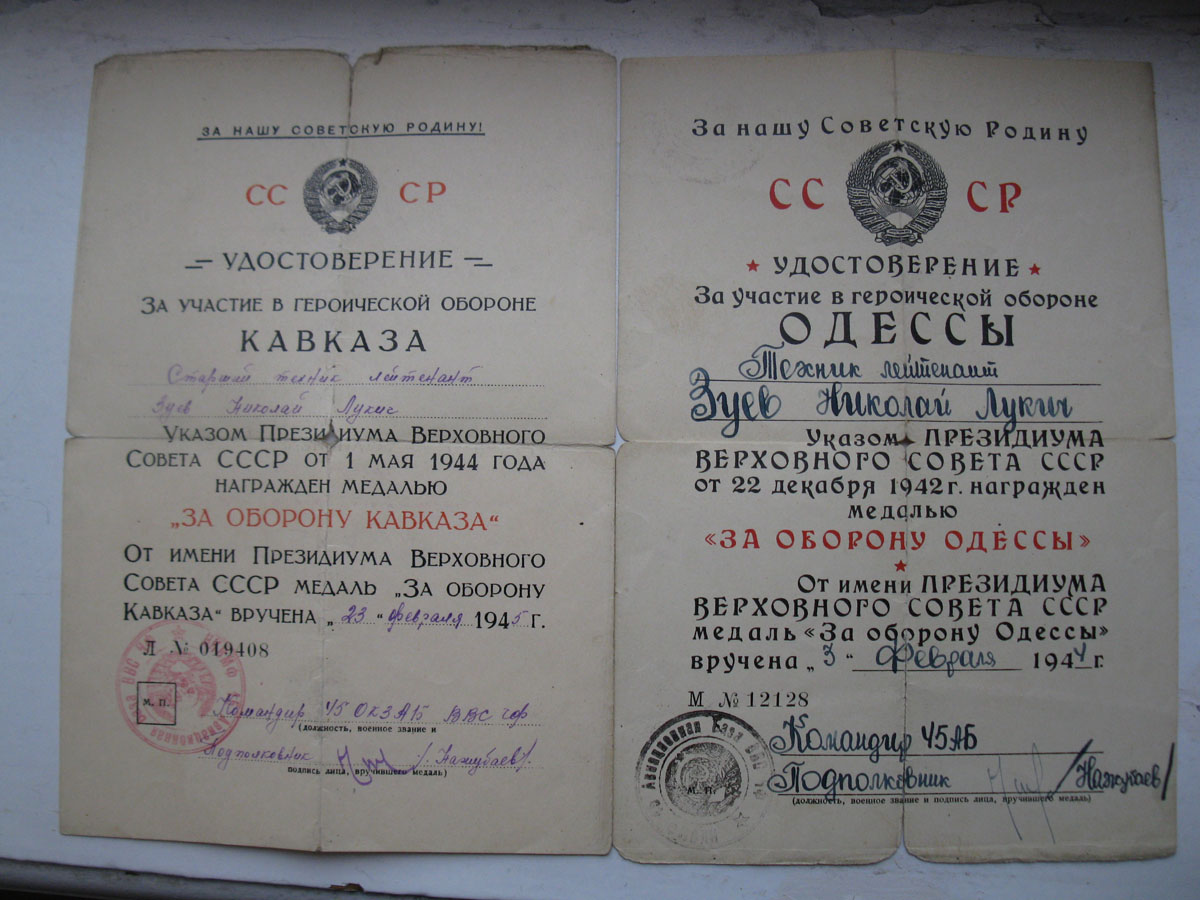 ЗА НАШУ СОВЕТСКУЮ РОДИНУ!
СС СР
УДОСТОВЕРЕНИЕ
ЗА УЧАСТИЕ В ГЕРОИЧЕСКОЙ ОБОРОНЕ
КАВКАЗА
Старший техник лейтенант
Зуев Николай Лукич
УКАЗОМ ПРЕЗИДИУМА ВЕРХОВНОГО
СОВЕТА СССР ОТ 1 МАЯ 1944 ГОДА
НАГРАЖДЕН МЕДАЛЬЮ
„ЗА ОБОРОНУ КАВКАЗА“
ОТ ИМЕНИ ПРЕЗИДИУМА ВЕРХОВНОГО
СОВЕТА СССР МЕДАЛЬ „ЗА ОБОРОНУ
КАВКАЗА“ ВРУЧЕНА „23“ февраля 1945 г.
Л № 019408
М. П.
Командир 45 ОКЗАБ ВВС ЧФ
(должность, военное звание и
Подполковник /Нажубаев/
подпись лица, вручившего медаль)
За нашу Советскую Родину
СС СР
УДОСТОВЕРЕНИЕ
За участие в героической обороне
ОДЕССЫ
Техник лейтенант
Зуев Николай Лукич
Указом ПРЕЗИДИУМА
ВЕРХОВНОГО СОВЕТА СССР
от 22 декабря 1942 г. награжден
медалью
«ЗА ОБОРОНУ ОДЕССЫ»
От имени ПРЕЗИДИУМА
ВЕРХОВНОГО СОВЕТА СССР
медаль «За оборону Одессы»
вручена „3“ Февраля 1944 г.
М № 12128
Авиационная База ВВС
М. П.
Командир 45 АБ
Подполковник /Нажубаев/
(должность, военное звание и подпись лица, вручившего медаль)